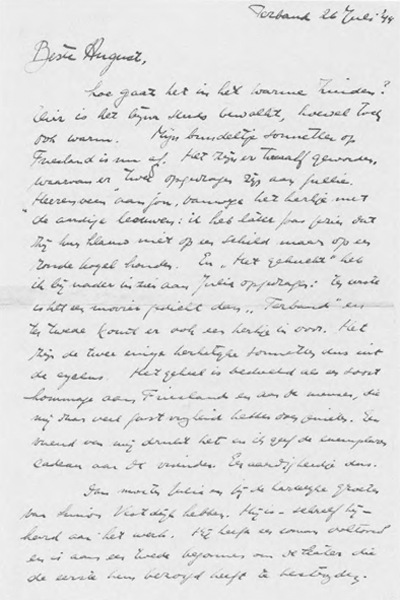 Terband 26 Juli '49
Beste August,
hoe gaat het in het warme Zuiden?
Hier is het bijna steeds bewolkt, hoewel toch
ook warm. Mijn bundeltje sonnetten op
Friesland is nu af. Het zijn er twaalf geworden,
waarvan er twee opgedragen zijn aan jullie.
Heerenveen aan jou, vanwege het hertje met
de aardige leeuwen: ik heb later pas gezien dat
zij hun klauw niet op een schild maar op een
ronde kogel houden. En "Het gehucht" heb
ik bij nader inzien aan Julia opgedragen: ten eerste
is het een mooier gedicht dan "Terband" en
ten tweede komt er ook een hertje in voor. Het
zijn de twee enige sonnetten dus uit
de cyclus. Het geheel is bedoeld als een soort
hommage aan Friesland en aan de mensen, die
mij daar veel gastvrijheid hebben doen genieten. Een
vriend van mij drukt het en ik geef de exemplaren
cadeau aan de vrienden. Een aardigheidje dus.
Dan moeten Julia en jij de hartelijke groeten
van Simon Vestdijk hebben. Hij is
aan het werk. Hij heeft een roman voltooid
en is aan een tweede begonnen om de kater die
de eerste hem bezorgd heeft te bestrijden.